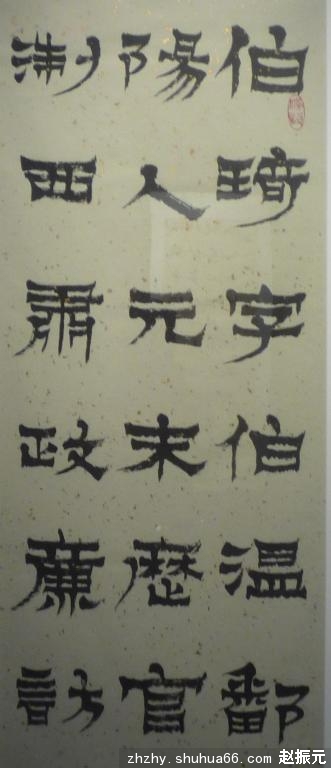 伯琦字伯温鄱
陽人元末歷官
淛西肅政廉訪
zhzhy.shuhua66.com 赵振元